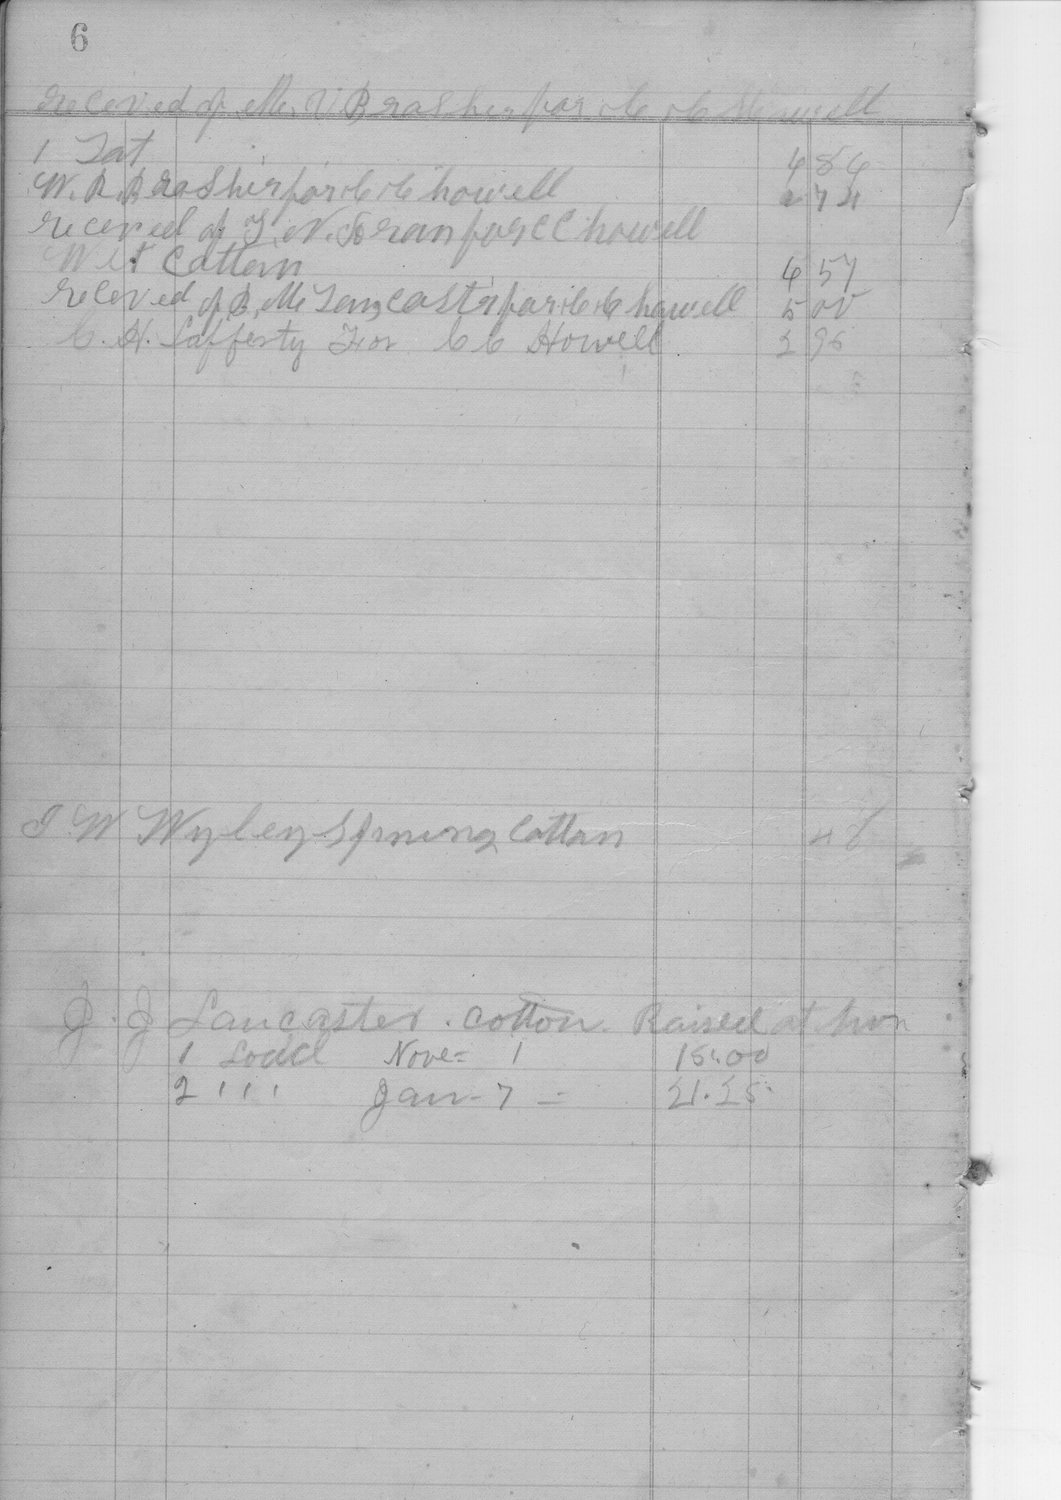 6
received of M. V Brasher for C C Howell
1 Lot 4 86
W. R. Brasher for C C howell 2 74
received of T. N. for C C howell
Wet Cotton 4 57
received of B. M Lancaster for C C howell 5 00
C. H. Lafferty For C C Howell 2 96
J W Wyley Spining Cotton
J. J Lancaster. cotton. Raised at
1 Load Nove= 1 15.00
2 ''' Jan- 7 =